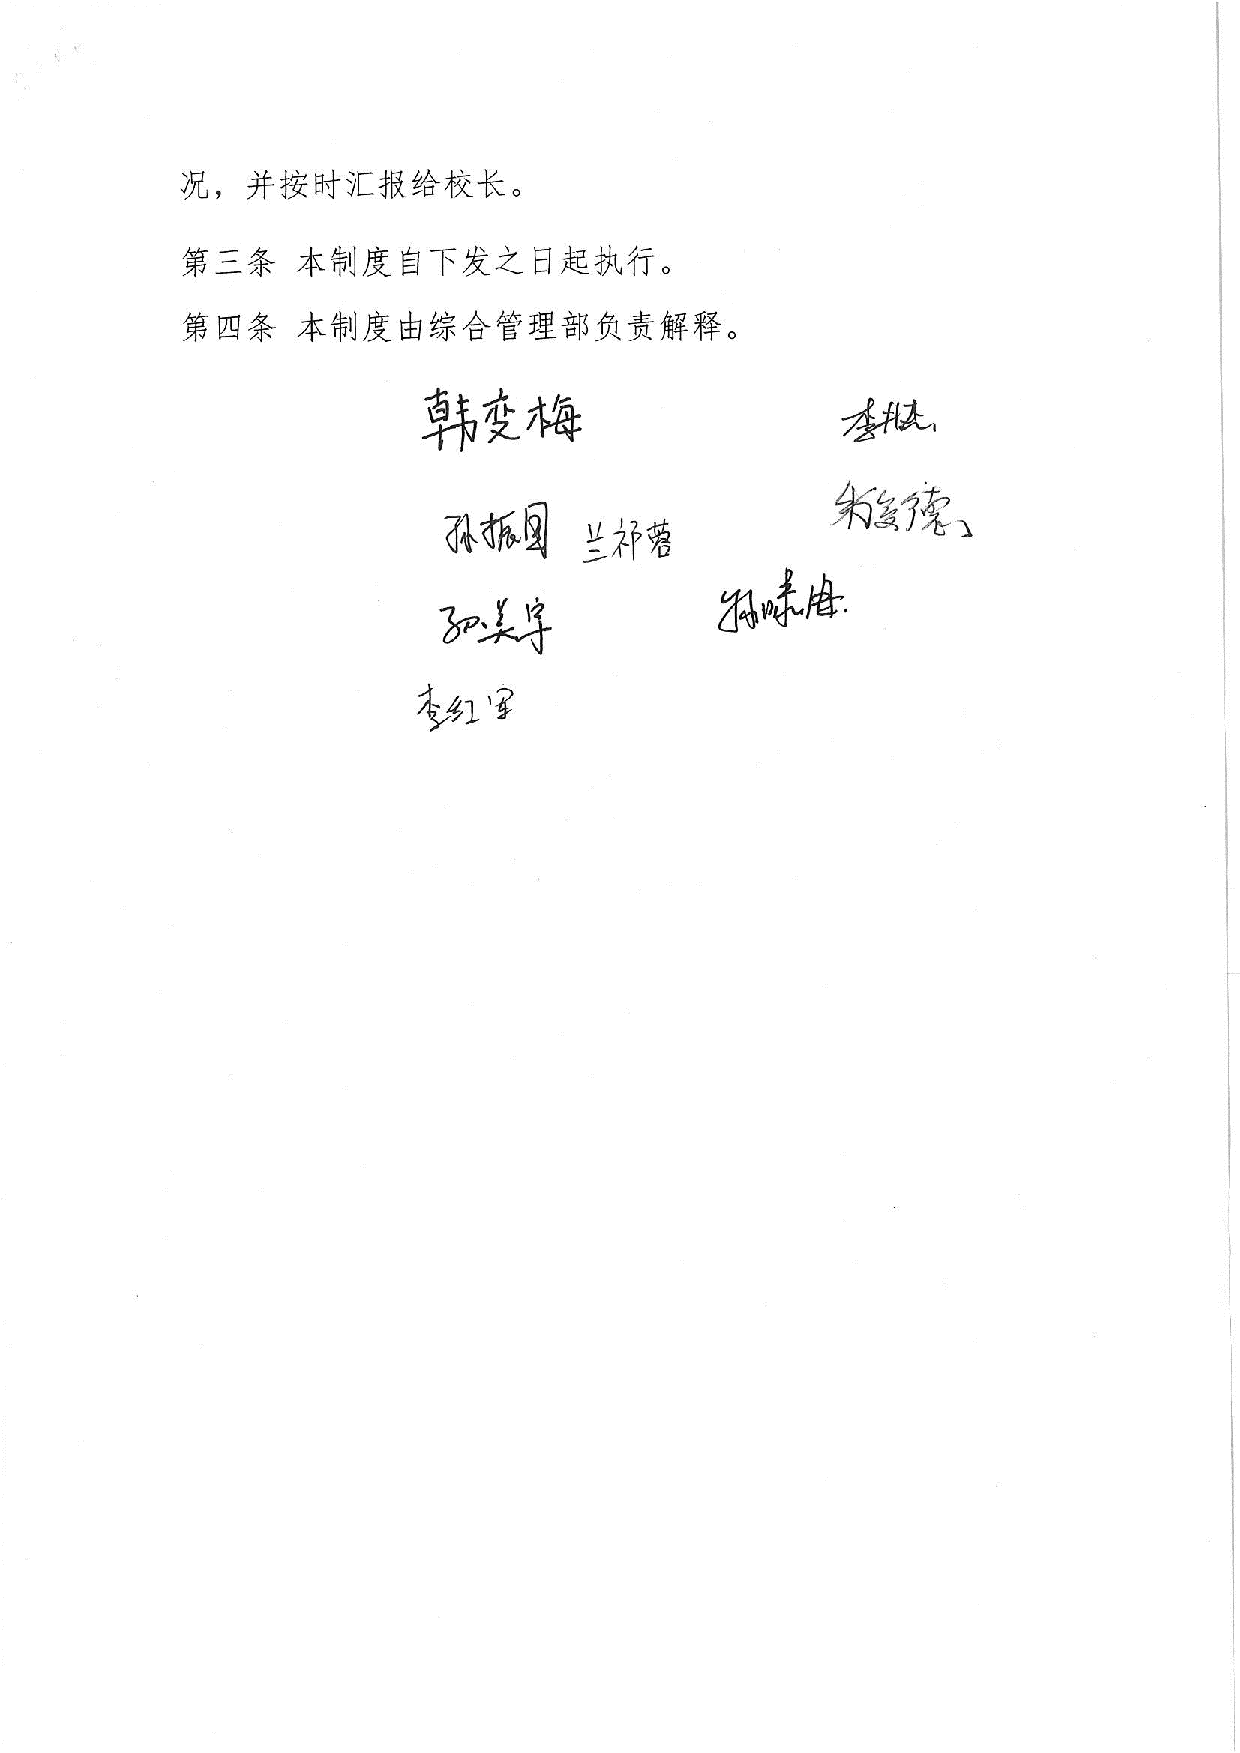 况，并按时汇报给校长。
第三条 本制度自下发之日起执行。
第四条 本制度由综合管理部负责解释。
韩变梅
孙振国 兰祁蓉
孙美宇
李红军